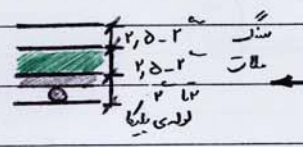 ۲,۵-۳ سنگ
۲,۵-۳ ملات
۲ تا ۳
لوله‌ی پلیکا